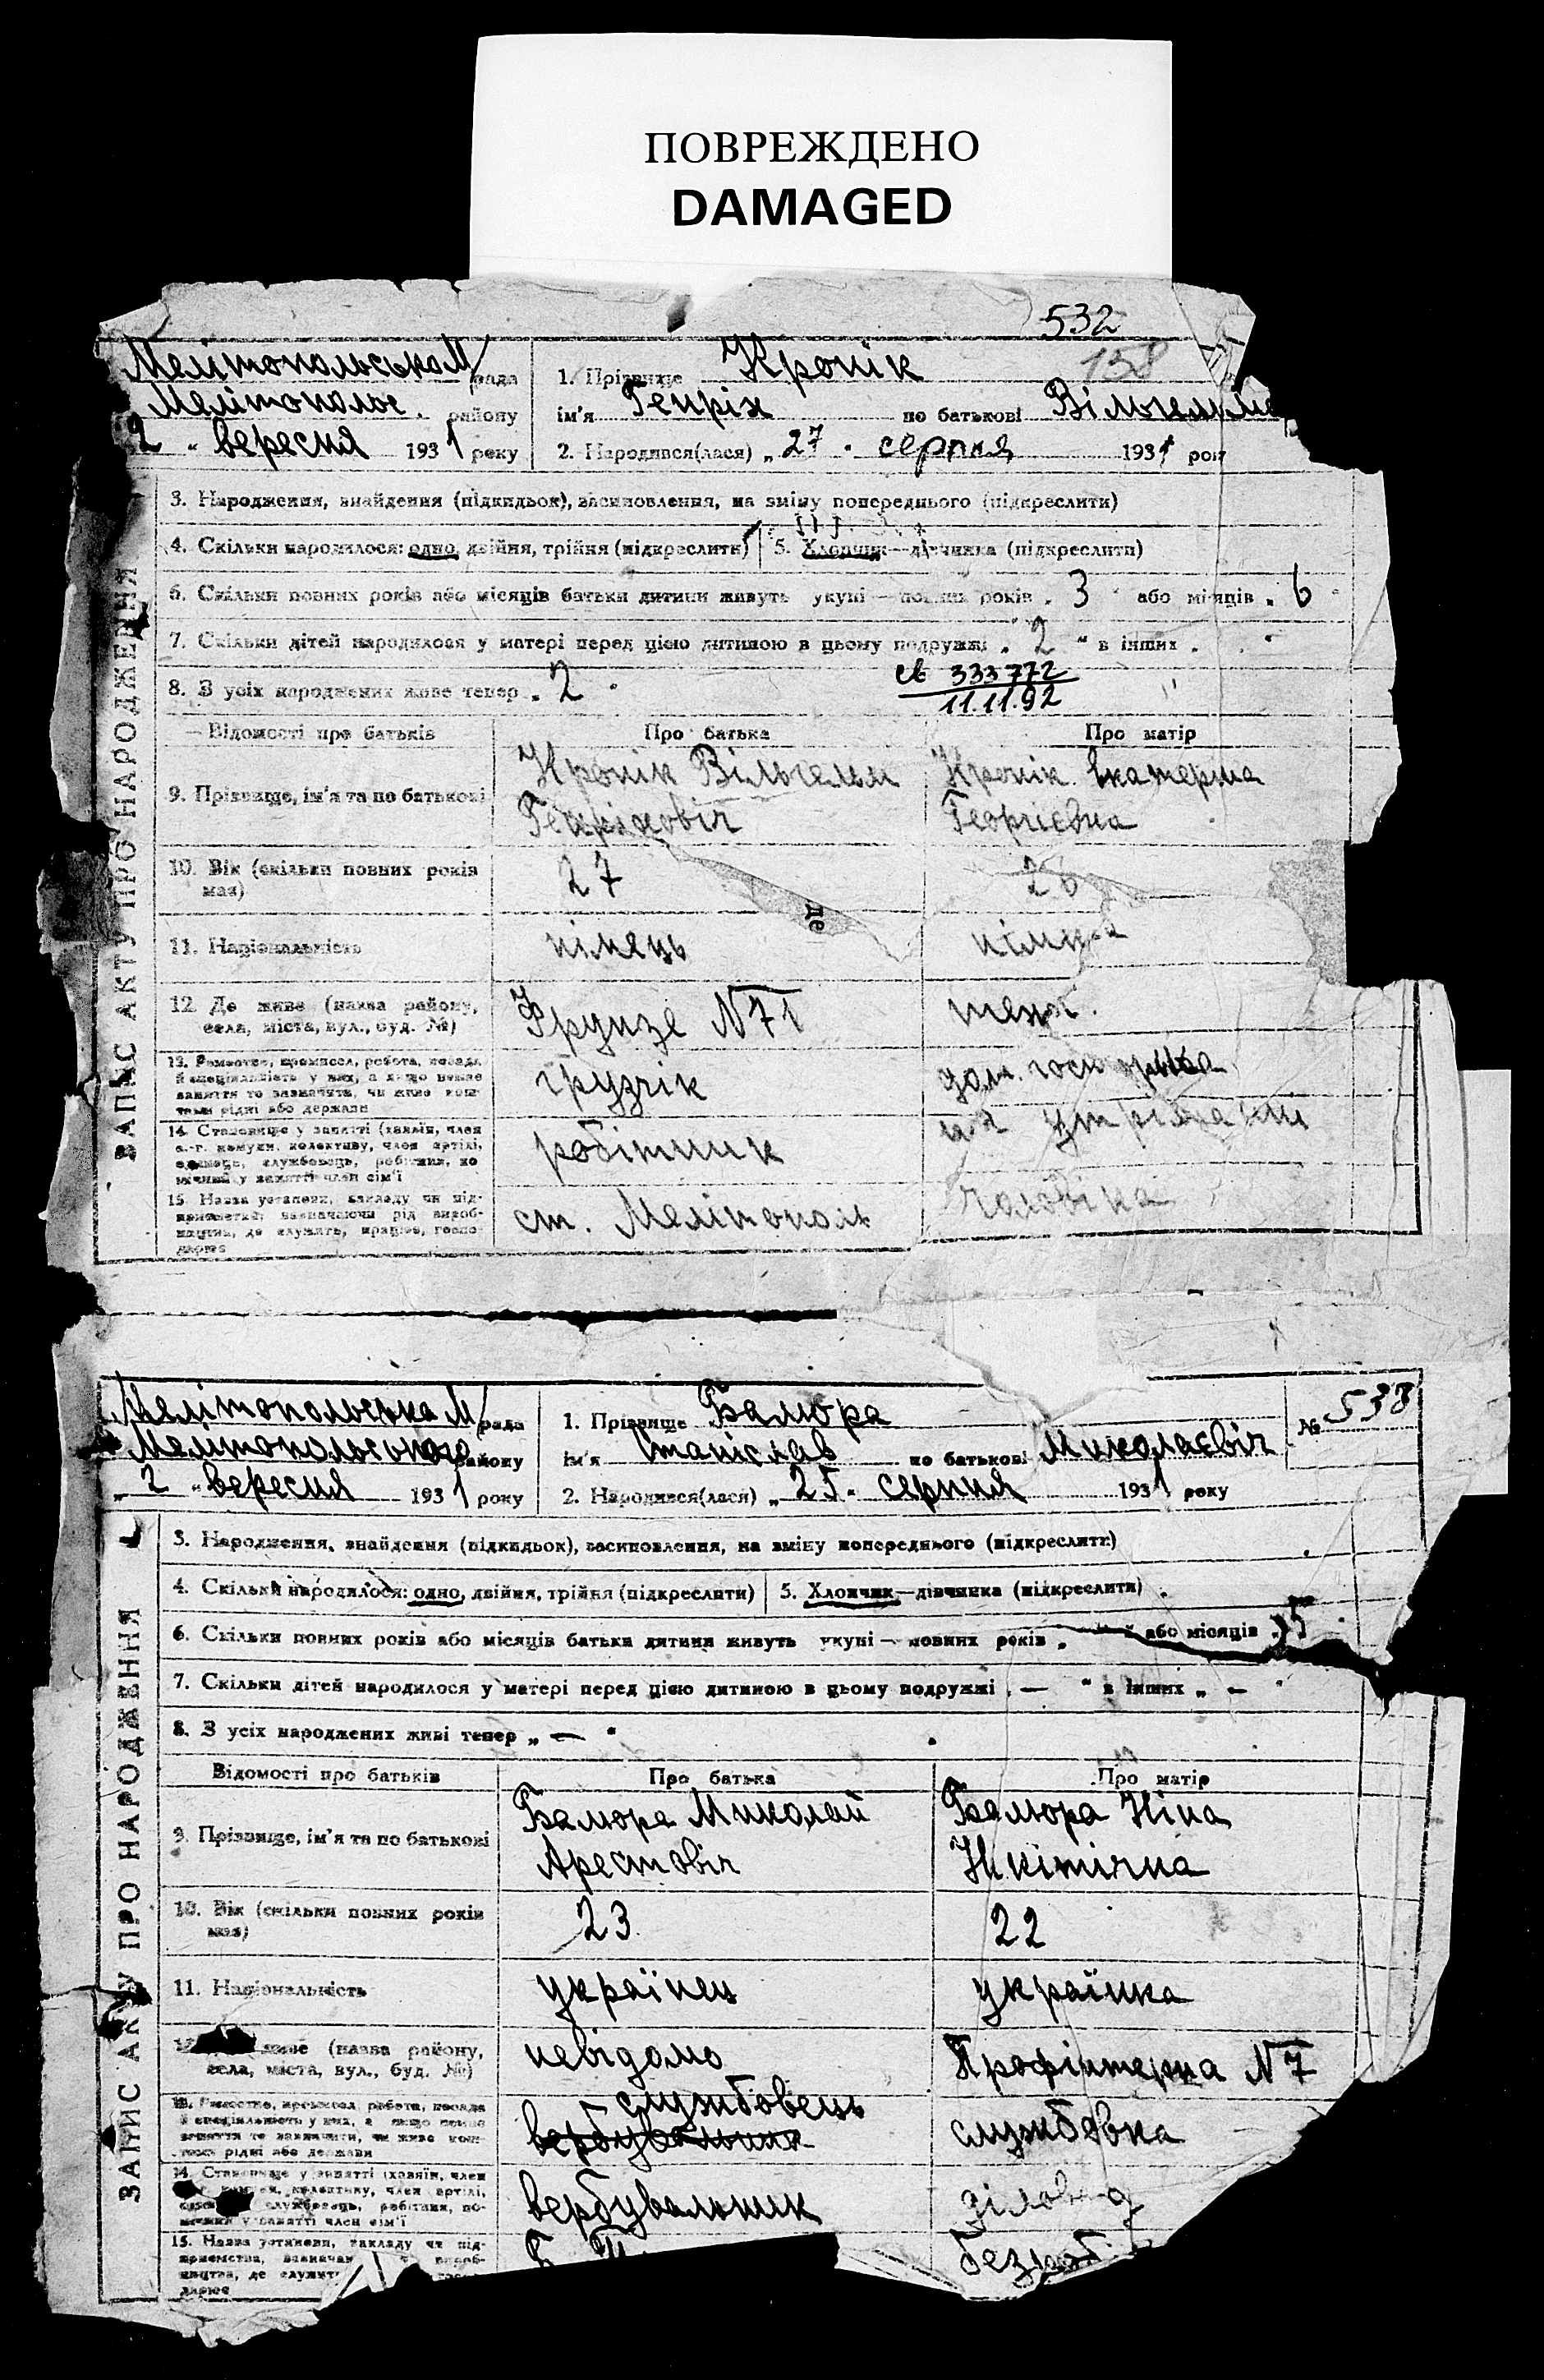 ПОВРЕЖДЕНО
DAMAGED
532
158
Мелітопольська М/рада
Мелітополье району
2 " вересня 1931 року
1. Прізвище Кронік
ім'я Генріх по батькові Вільгельмо
2. Народився(лася) „ 27 " серпня 1931 року
ЗАПИС АКТУ ПРО НАРОДЖЕННЯ
3. Народження, знайдення (підкидьок), засиновлення, на зміну попереднього (підкреслити)
4. Скільки народилося: одно, двійня, трійня (підкреслити) 5. Хлопчик—дівчинка (підкреслити)
6. Скільки повних років або місяців батьки дитини живуть укупі — повних років „ 3 " або місяців „ 6 "
7. Скільки дітей народилося у матері перед цією дитиною в цьому подружжі „ 2 " в інших „ "
8. З усіх народжених живе тепер „ 2 "
св 333772
11.11.92
Відомості про батьків Про батька Про матір
9. Прізвище, ім'я та по батькові
Кронік Вільгельм
Генріховіч
Кронік Екатерина
Георгієвна
10. Вік (скільки повних років має) 27 26
11. Національність німець німка
де
12. Де живе (назва району,
села, міста, вул., буд. №)
Фрунзе N71
13. Ремество, промисел, робота, посада
й спеціяльність у них, а якщо немає
заняття то зазначити, чи живе кош-
том рідні або держави
грузчік
дом. господарка
14. Становище у занятті (хазяїн, член
с.-г. комуни, колективу, член артілі,
одинець, службовець, робітник, по-
мічний у занятті член сім'ї
робітник
на утріманні
15. Назва установи, закладу чи під-
приємства, зазначаючи рід вироб-
ництва, де служить, працює, госпо-
дарює
ст. Мелітополь
чоловіка
Мелітопольська М/рада
Мелітопольського району
„ 2 " вересня 1931 року
1. Прізвище Бамора
ім'я Станіслав по батькові Миколаєвіч
2. Народився(лася) „ 25 " серпня 1931 року
№ 538
ЗАПИС АКТУ ПРО НАРОДЖЕННЯ
3. Народження, знайдення (підкидьок), засиновлення, на зміну попереднього (підкреслити)
4. Скільки народилося: одно, двійня, трійня (підкреслити) 5. Хлопчик—дівчинка (підкреслити)
6. Скільки повних років або місяців батьки дитини живуть укупі — повних років „ " або місяців „ 5 "
7. Скільки дітей народилося у матері перед цією дитиною в цьому подружжі „ — " в інших „ — "
8. З усіх народжених живі тепер „ — "
Відомості про батьків Про батька Про матір
9. Прізвище, ім'я та по батькові
Бамора Миколай
Арестовіч
Бамора Ніна
Нікітічна
10. Вік (скільки повних років має) 23 22
11. Національність українец українка
живе (назва району,
села, міста, вул., буд. №)
невідомо
Профінтерна N 7
13. Ремество, промисел, робота, посада
й спеціяльність у них, а якщо немає
заняття то зазначити, чи живе кош-
том рідні або держави
службовець
вербувальник
службовка
14. Становище у занятті (хазяїн, член
колективу, член артілі,
службовець, робітник, по-
мічний у занятті член сім'ї
вербувальник
діловод
15. Назва установи, закладу чи під-
приємства, зазначаю вироб-
ництва, де служить госпо-
дарює
безроб